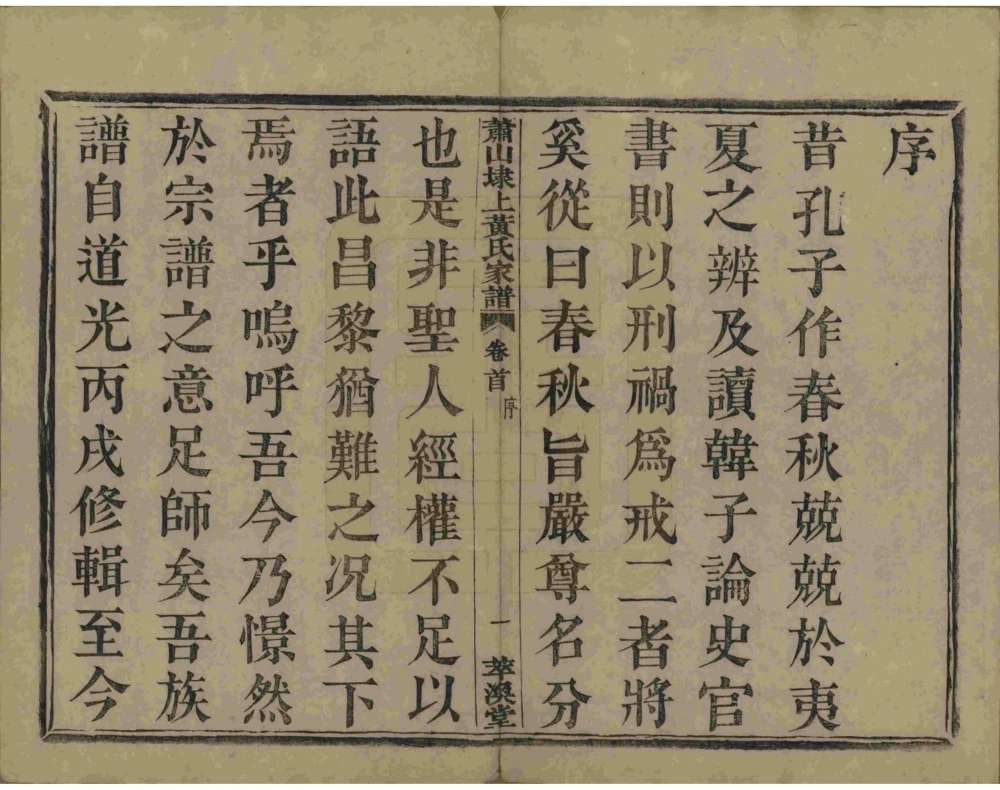 序
昔孔子作春秋兢兢於夷
夏之辨及讀韓子論史官
書則以刑禍爲戒二者將
奚從曰春秋旨嚴尊名分
蕭山埭上黃氏家譜 卷首 序 一 萃渙堂
也是非聖人經權不足以
語此昌黎猶難之况其下
焉者乎嗚呼吾今乃憬然
於宗譜之意足師矣吾族
譜自道光丙戌修輯至今